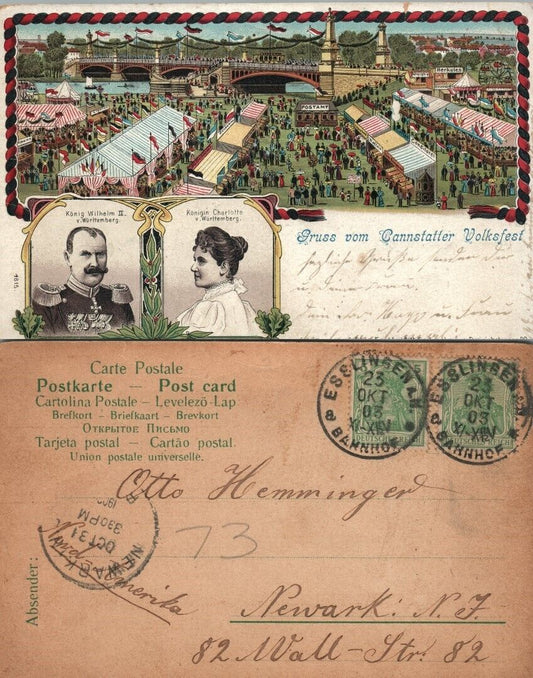 POSTAMT
König Wilhelm II.
v. Württemberg.
Königin Charlotte
v. Württemberg.
Gruss vom Cannstatter Volksfest
herzliche Grüße senden
1815
Carte Postale
Postkarte — Post card
Cartolina Postale – Levelezö-Lap
Brefkort – Briefkaart – Brevkort
ОТКРЫТОЕ ПИСЬМО
Tarjeta postal – Cartão postal.
Union postale universelle.
ESSLINGEN
23
OKT
03
XI-XIIV
BAHNHOF
ESSLINGEN
23
OKT
03
XI-XIIV
BAHNHOF
Otto Hemminger
NEWARK
OCT 31
330 PM
Nord Amerika
73
Absender:
Newark: N. J.
82 Wall-Str: 82